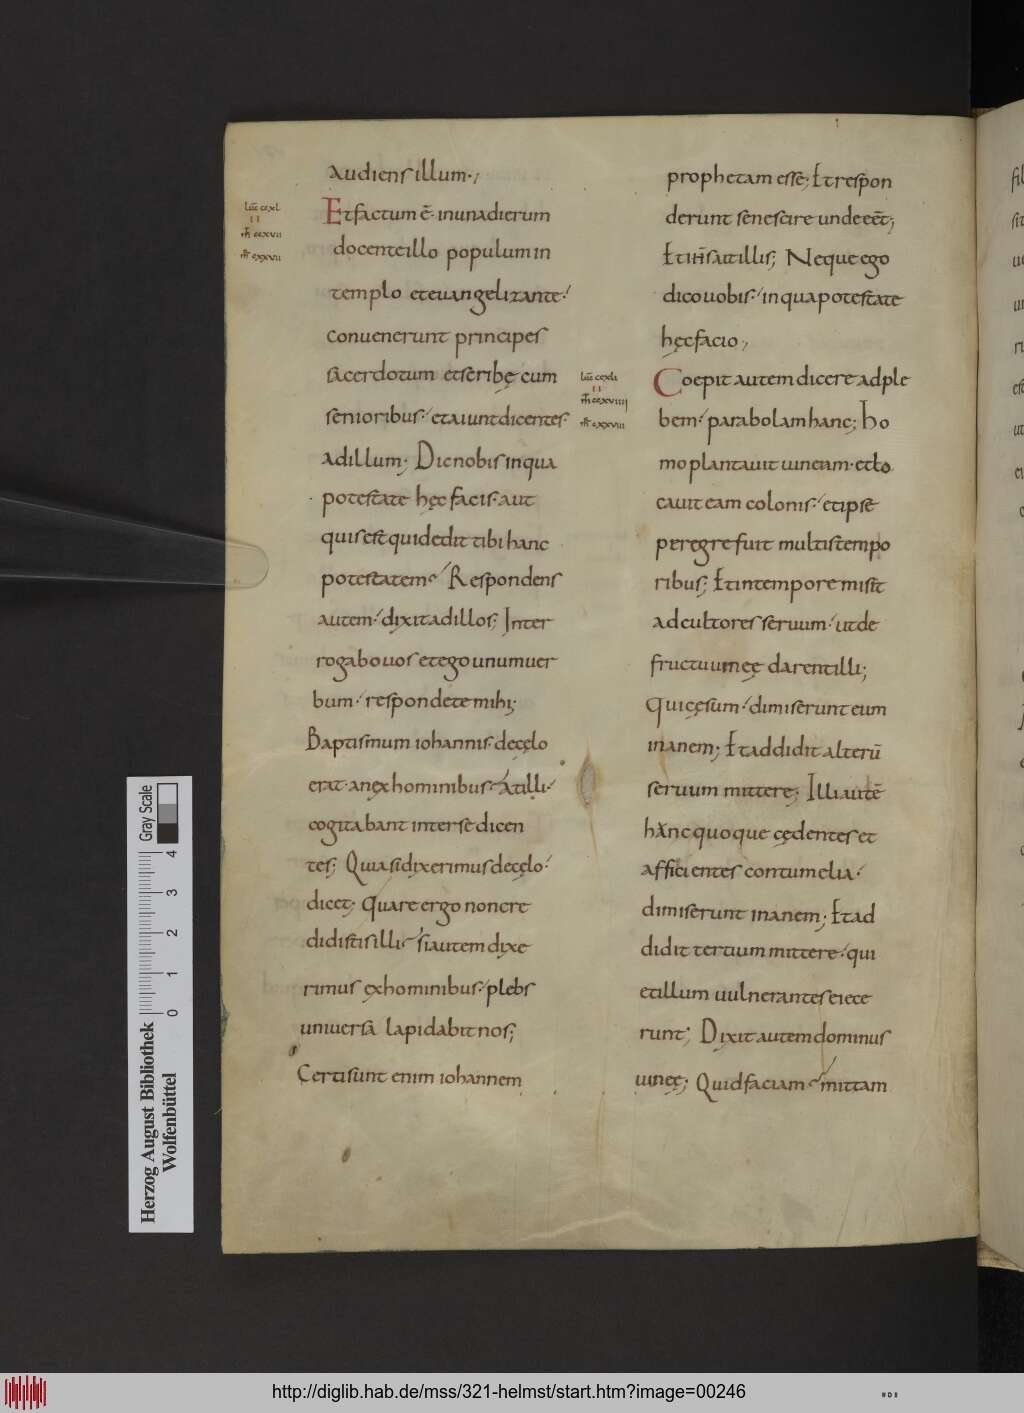 audiens illum·,
Et factum ē· in una dierum
docente illo populum in
templo et euangelizante·
conuenerunt principes
sacerdotum et scribę cum
senioribus· et aiunt dicentes·
ad illum; Dic nobis in qua
potestate hęc facis· aut
quis est qui dedit tibi hanc
potestatem· Respondens
autem· dixit ad illos; Inter
rogabo uos et ego unum uer
bum· respondete mihi;
Baptismum iohannis· de cęlo
erat· an ęx hominibus· At illi·
cogitabant inter se dicen
tes; Quia si dixerimus de cęlo·
dicet; Quare ergo non cre
didistis illi· si autem dixe
rimus ęx hominibus· plebs
uniuersa lapidabit nos;
Certi sunt enim iohannem
prophetam esse; Et respon
derunt se nescire unde eēt;
Et ih̄s ait illis; Neque ego
dico uobis· in qua potestate
hęc facio,
Coepit autem dicere ad ple
bem· parabolam hanc; Ho
mo plantauit uineam· et lo
cauit eam colonis· et ipse
peregre fuit multis tempo
ribus; Et in tempore misit
ad cultores seruum· ut de
fructu uineę darent illi;
Qui cęsum· dimiserunt eum
inanem; Et addidit alterū
seruum mittere; Illi autē
hunc quoque cędentes et
afficientes contumelia·
dimiserunt inanem; Et ad
didit tertium mittere· qui
et illum uulnerantes eiece
runt; Dixit autem dominus
uineę; Quid faciam· mittam
Herzog August Bibliothek
Wolfenbüttel
0 1 2 3 4
Gray Scale
http://diglib.hab.de/mss/321-helmst/start.htm?image=00246